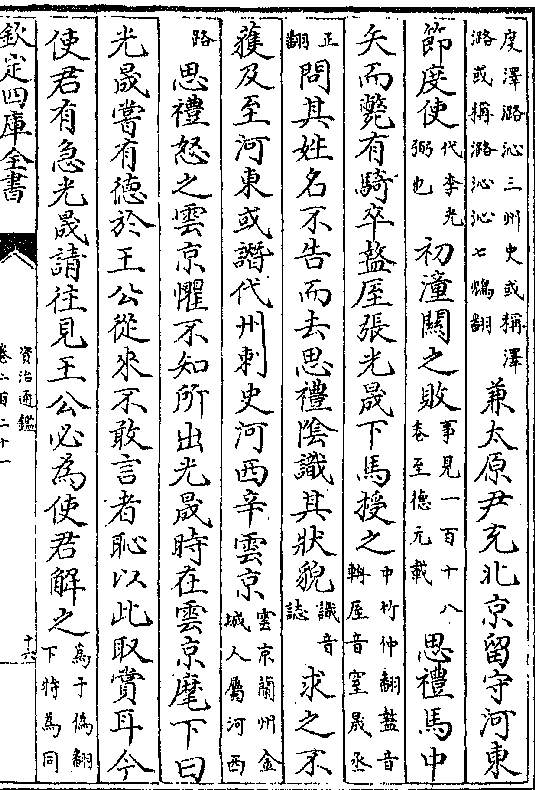 度澤潞沁三州史或稱澤
潞或稱潞沁沁七鴆翻
兼太原尹充北京留守河東
節度使
代李光
弼也
初潼關之敗
事見一百十八
卷至德元載
思禮馬中
矢而斃有騎卒盩厔張光晟下馬授之
中竹仲翻盩音
輈厔音窒晟丞
正
翻
問其姓名不告而去思禮陰識其狀貌
識音
誌
求之不
獲及至河東或譖代州刺史河西辛雲京
雲京蘭州金
城人屬河西
路
思禮怒之雲京懼不知所出光晟時在雲京麾下曰
光晟嘗有德於王公從來不敢言者恥以此取賞耳今
使君有急光晟請往見王公必為使君解之
為于偽翻
下特為同
欽定四庫全書
資治通鑑
卷二百二十一
十六